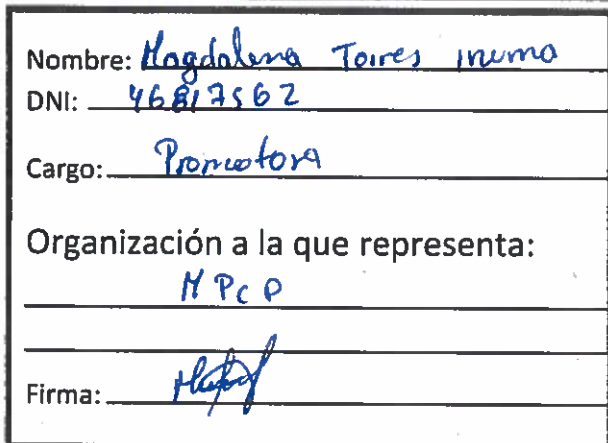 Nombre: Magdalena Torres inuma
DNI: 46817562
Cargo: Promotora
Organización a la que representa:
MPCP
Firma: